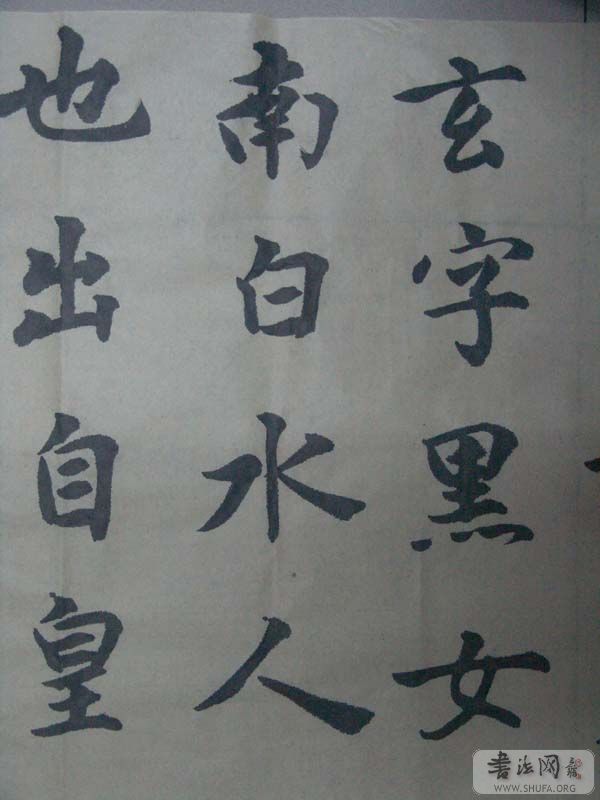 玄字黑女
南白水人
也出自皇
书法网
WWW.SHUFA.ORG